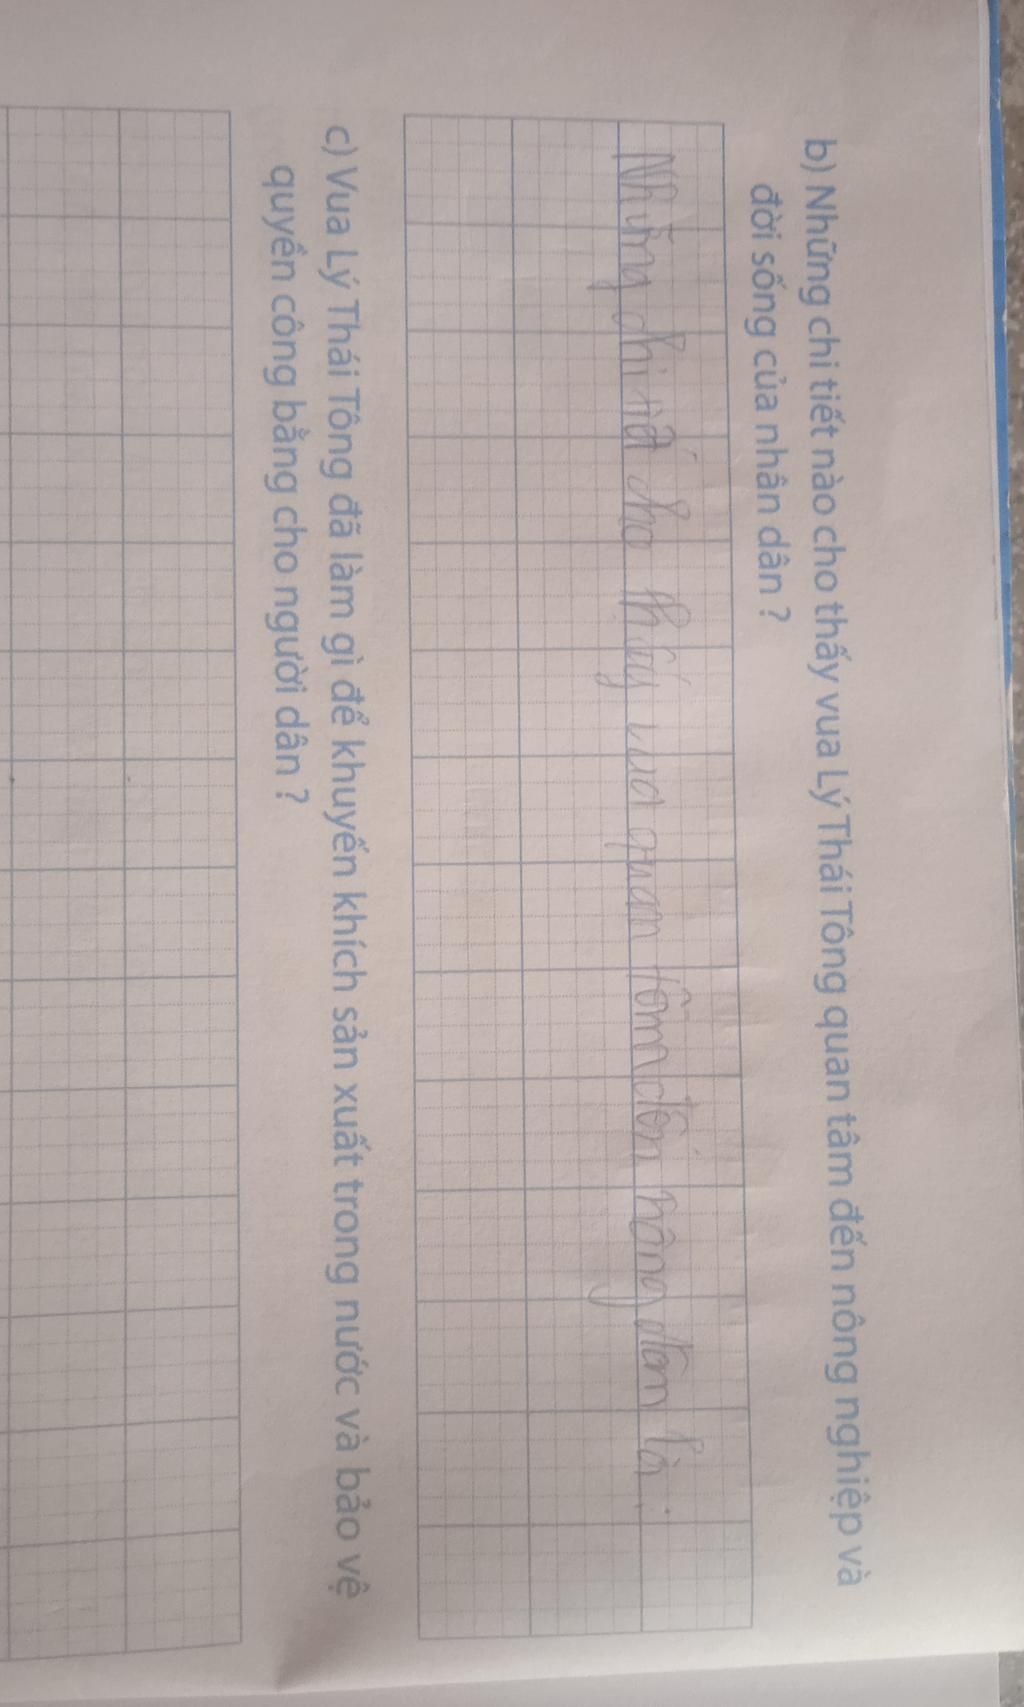 b) Những chi tiết nào cho thấy vua Lý Thái Tông quan tâm đến nông nghiệp và
đời sống của nhân dân ?
Những chi tiế cho thấy vua quan tâm đến nông dâm là:
c) Vua Lý Thái Tông đã làm gì để khuyến khích sản xuất trong nước và bảo vệ
quyền công bằng cho người dân ?